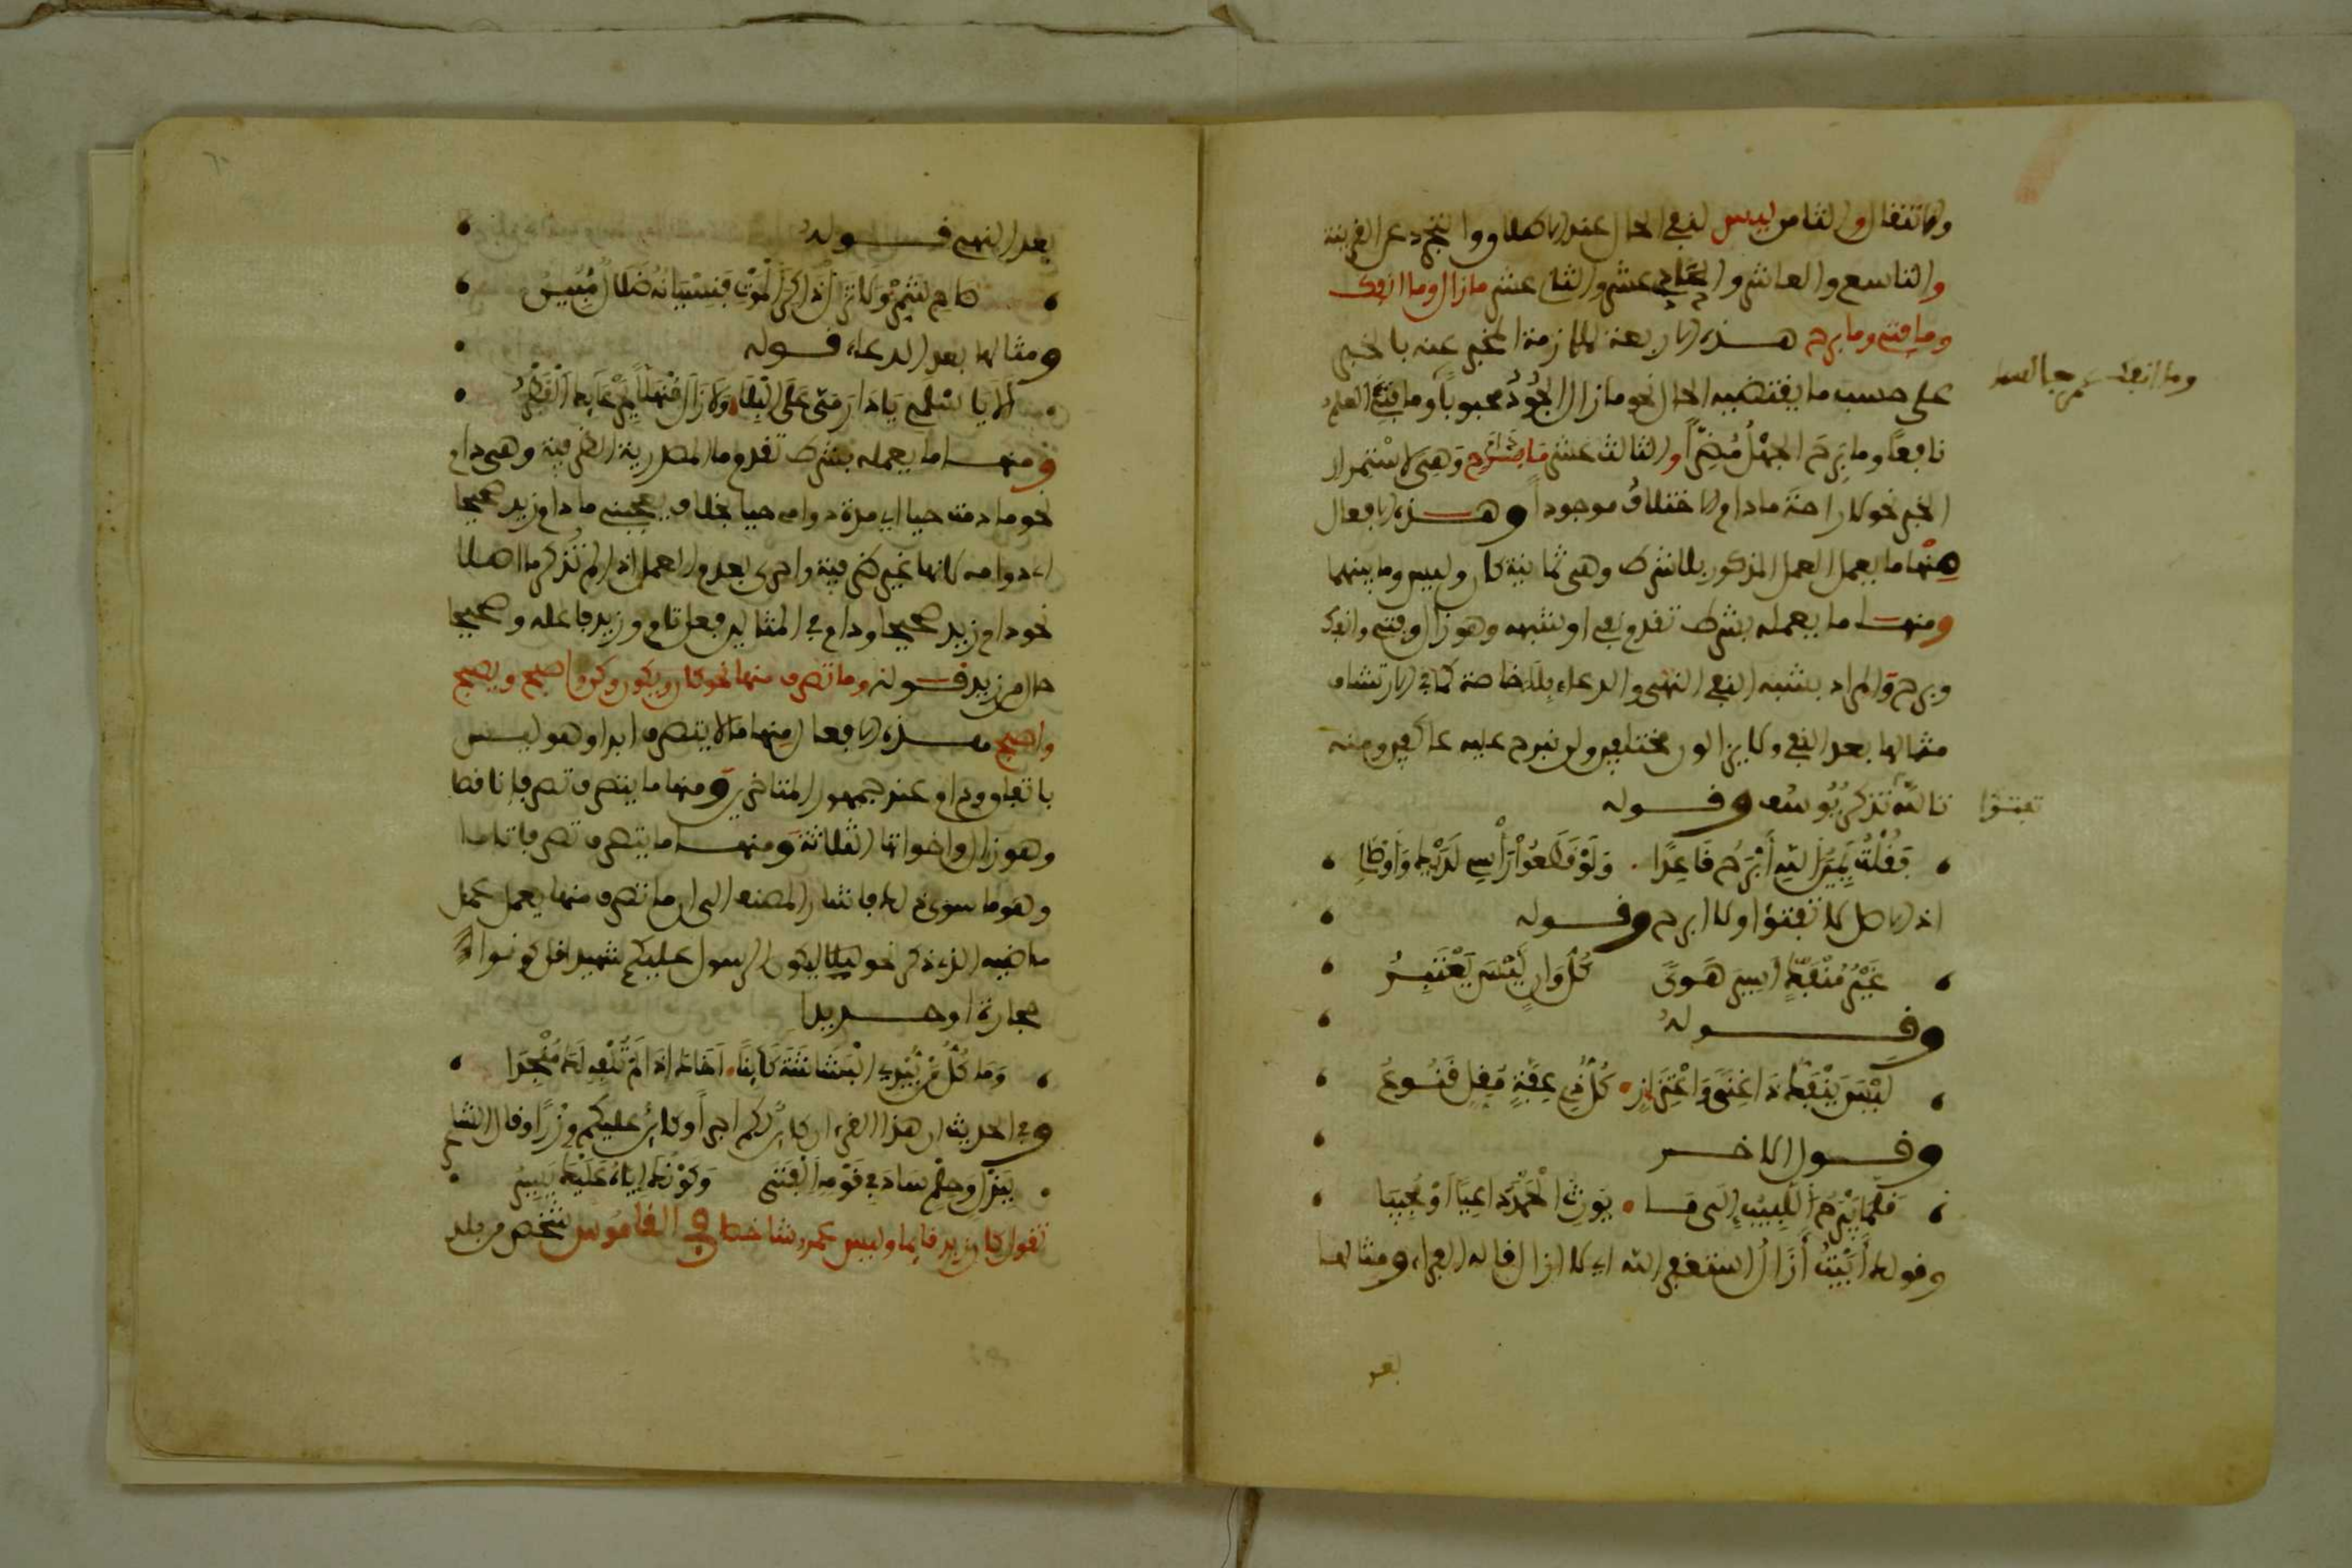 والانتقال والثامن ليس لنفي الحال عند الاطلاق والتجرد عن القرينة
والتاسع والعاشر والحادي عشر والثاني عشر مازال وما انفك
وما فتئ وما برح هذه الاربعة لملازمة المخبر عنه بالخبر
وما انفك عمرو جالسا
على حسب ما يقتضيه الحال نحو مازال الجود محبوبا وما فتئ العلم
نافعا وما برح الجهل مضرا والثالث عشر ما دام وهي لاستمرار
الخبر نحو لا راحة مادام الاختلاف موجودا وهذه الافعال
منها ما يعمل العمل المذكور بلا شرط وهي ثمانية كان وليس وما بينهما
ومنها ما يعمله بشرط تقدم نفي او شبهه وهو زال وفتئ وانفك
وبرح والمراد بشبه النفي النهي والدعاء بلا خاصة كما في الارتشاف
مثالها بعد النفي ولا يزالون مختلفين ولن نبرح عليه عاكفين ومنه
تالله تذكر يوسف وقوله
تفتؤا
فقلت يمين الله أبرح قاعدا . ولو قطعوا رأسي لديك وأوصالي
اذ الاصل لا تفتؤا ولا ابرح وقوله
غير منفك أسير هوى كل وان ليس يعتبر
وقوله
ليس ينفك ذا غنى واعتزاز . كل ذي عفة مقل قنوع
وقول الاخر
قلما يبرح اللبيب إلى ما . يورث الحمد داعيا أو مجيبا
وقوله أبيت أزال أستغفر الله اي لا ازال قاله الفراء ومثالها
بعد
بعد النهي قوله
صاح شمر ولا تزل ذاكر الموت فنسيانه ضلال مبين
ومثالها بعد الدعاء قوله
ألا يا اسلمي يا دار مي على البلا . ولا زال منهلا بجرعائك القطر
ومنها ما يعمله بشرط تقدم ما المصدرية الظرفية وهي دام
نحو ما دمت حيا اي مدة دوامي حيا بخلاف يعجبني ما دام زيد صحيحا
اي دوامه لانها غير ظرفية واحرى بعدم العمل اذا لم تذكر ما اصلا
نحو دام زيد صحيحا ودام في المثالين فعل تام وزيد فاعله وصحيحا
حال من زيد قوله وما تصرف منها نحو كان ويكون وكن واصبح ويصبح
واصبح هذه الافعال منها ما لا يتصرف ابدا وهو ليس
باتفاق ودام عند جمهور المتاخرين ومنها ما يتصرف تصرفا ناقصا
وهو زال واخواتها الثلاثة ومنها ما يتصرف تصرفا تاما
وهو ما سوى ذلك فاشار المصنف الى ان ما تصرف منها يعمل عمل
ماضيه الذي ذكر نحو ليكون الرسول عليكم شهيدا قل كونوا
حجارة او حديدا
وما كل من يبدي البشاشة كائنا . أخاك إذا لم تلفه لك منجدا
وفي الحديث ان هذا القرءان كائن لكم اجرا وكائن عليكم وزرا وقال الشاعر
ببذل وحلم ساد في قومه الفتى وكونك إياه عليك يسير
تقول كان زيد قايما وليس عمرو شاخصا في القاموس شخص من بلد